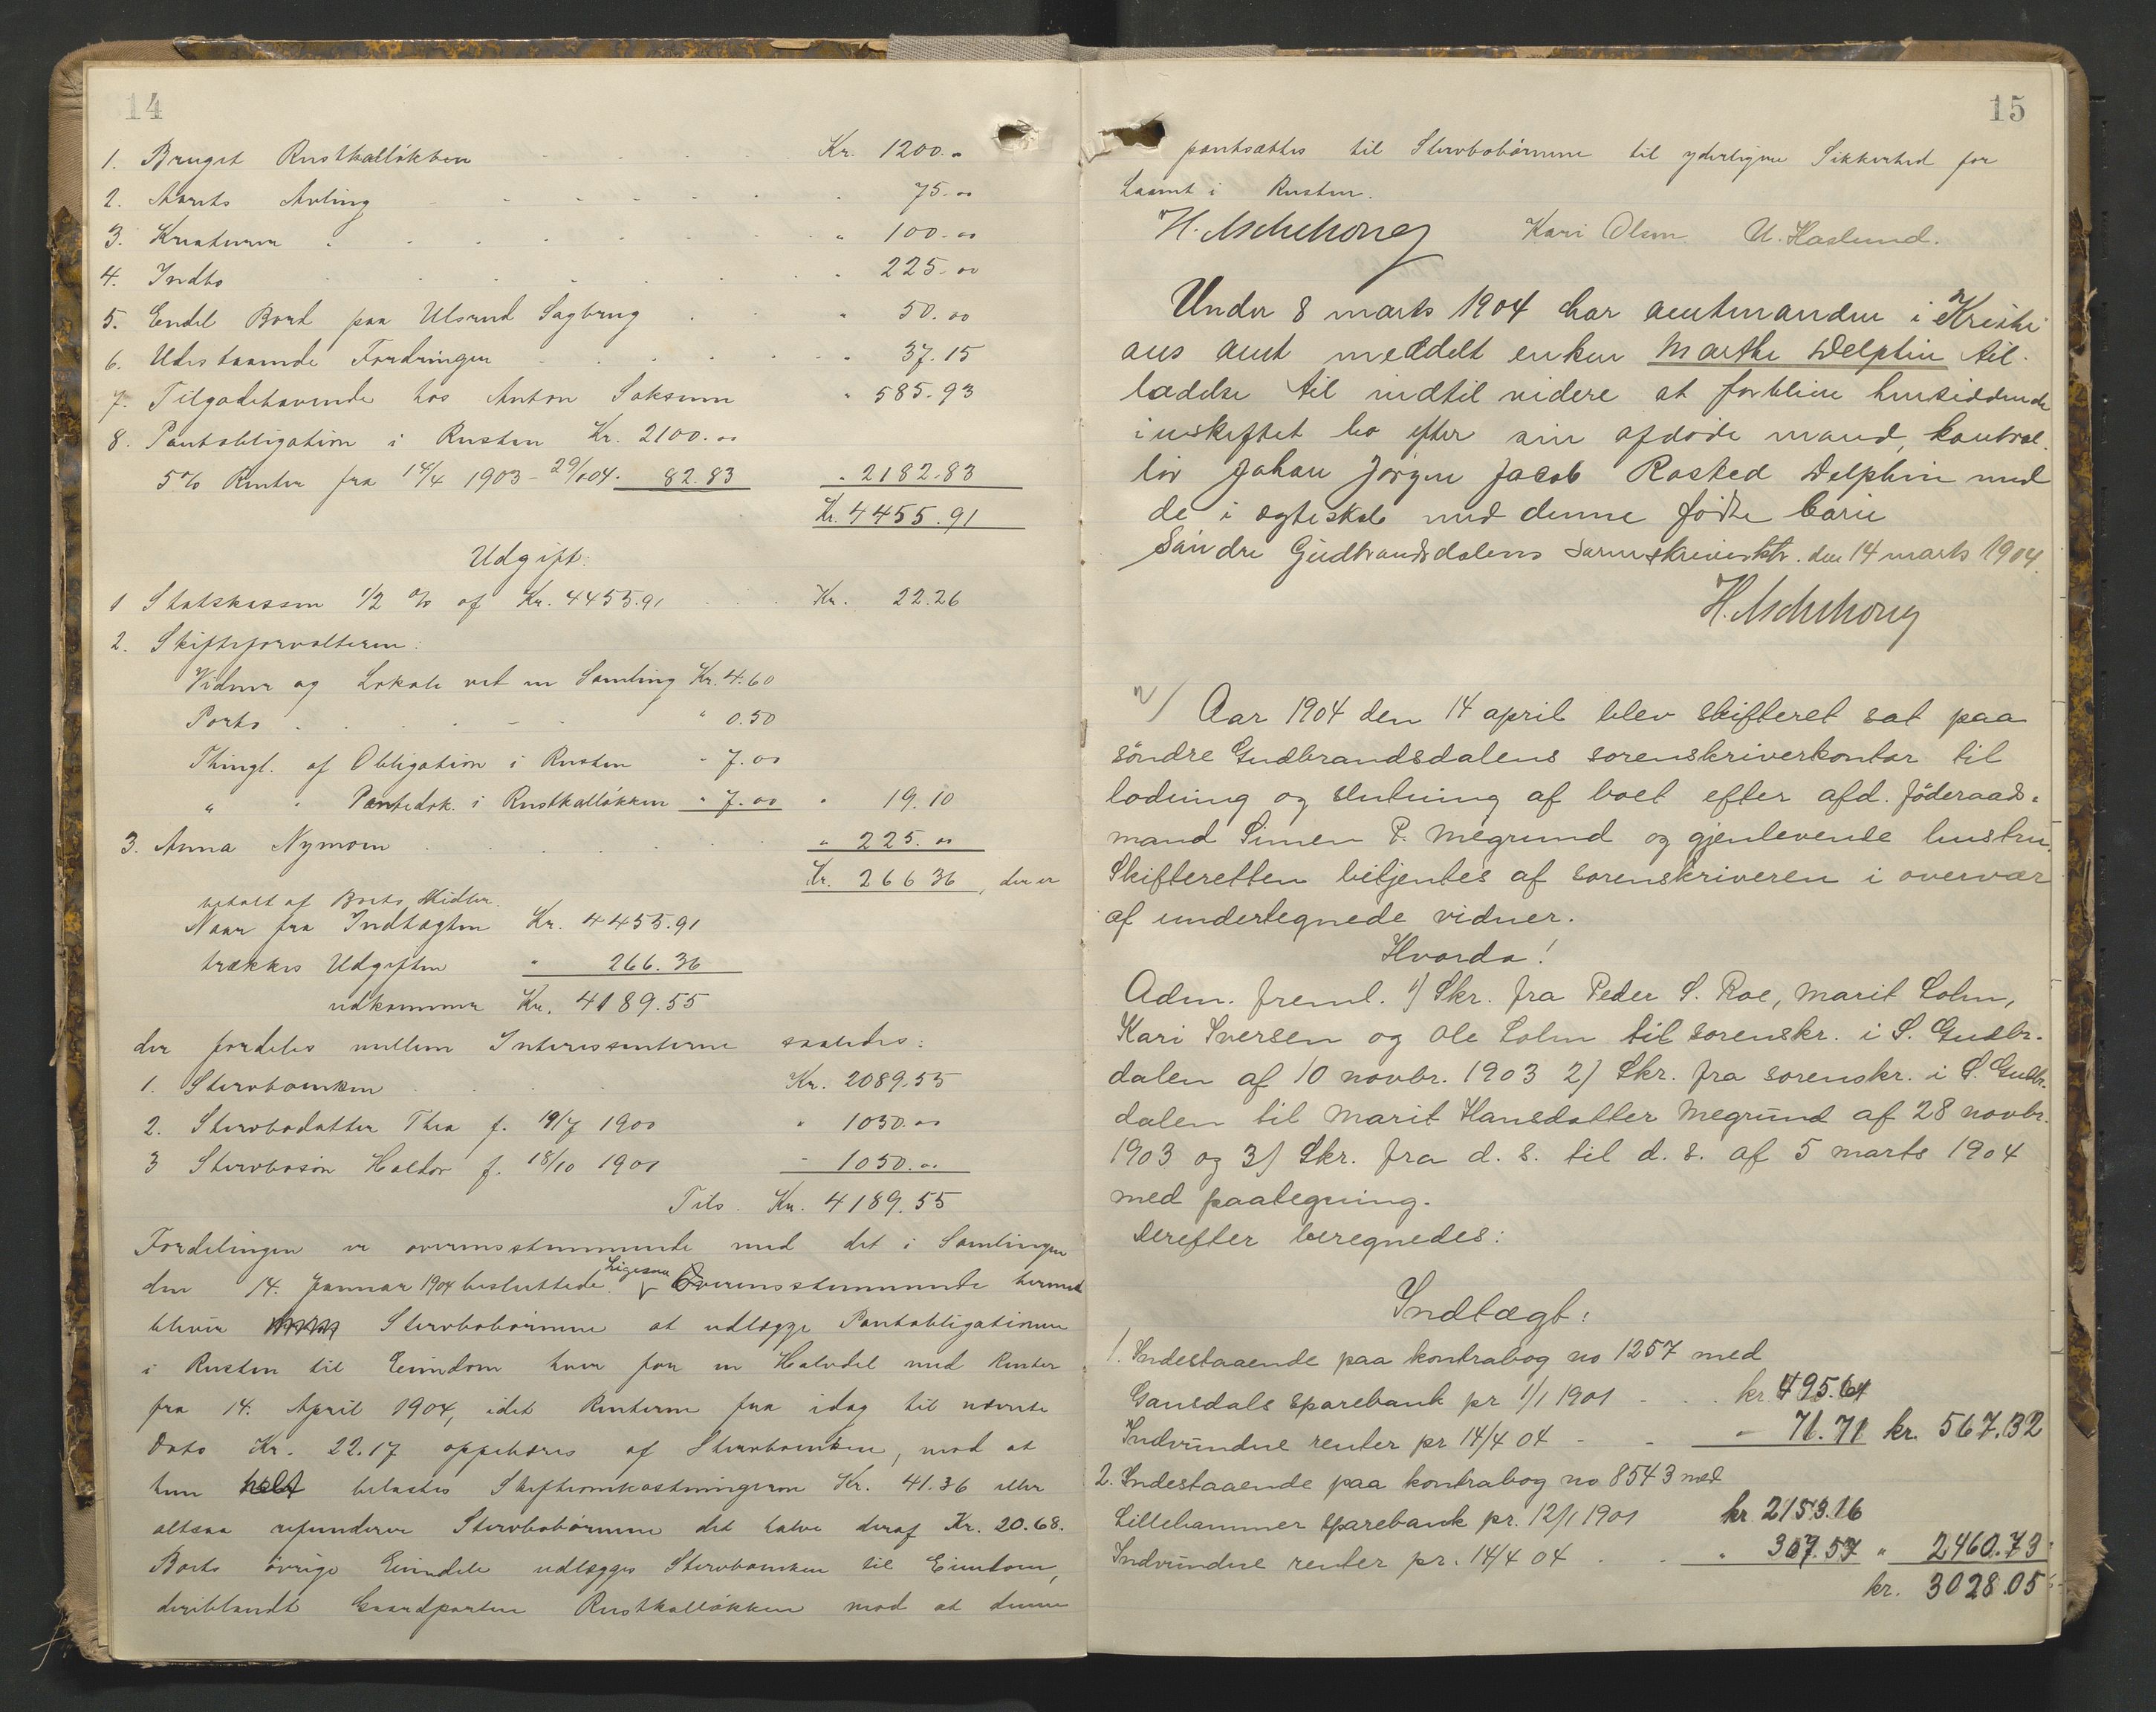 14
1. Bruget Rustkalløkken . . . . Kr. 1200.-
2. Aarets Avling . . . . . . . 75.00
3. Kreaturer . . . . . . " 100.00
4. Indbo . . . . . . . 225.00
5. Endel Bord paa Ulsrud Sagbrug . . " 50.00
6. Udestaaende Fordringer . . . . . . 37.15
7. Tilgodehavende hos Anton Saksum " 585.93
8. Pantobligation i Rusten Kr. 2100.00
5% Renter fra 14/4 1903 - 29/1 04. 82.83 " 2182.83
Kr. 4455.91
Udgift:
1 Statskassen 1/2 % af Kr. 4455.91 . . . Kr. 22.26
2. Skifteforvalteren:
Vidner og Lokale ved en Samling Kr. 4.60
Porto . . . . - . " 0.50
Thingl. af Obligation i Rusten " 7.00
" " Pantedok. i Rustkalløkken " 7.00 " 19.10
3. Anna Nymoen . . . . . . " 225.00
Kr. 266 36, der er
betalt af Boets Midler.
Naar fra Indtægten Kr. 4455.91
trækkes Udgiften " 266.36
udkommer Kr. 4189.55
der fordeles mellem Interessenterne saaledes:
1. Stervboenken . . . . Kr. 2089.55
2. Stervbodatter Thea f. 19/7 1900 " 1050.00
3 Stervbosøn Haldor f. 18/10 1901 - 1050.00
Tils. Kr. 4189.55
Fordelingen er overensstemmende med det i Samlingen
den 14. Januar 1904 besluttede. Ligesaa Overensstemmende hermed
bliver Stervbobørnene at udlægge Pantobligationen
i Rusten til Eiendom hver for en Halvdel med Renter
fra 14. April 1904, idet Renterne fra idag til nævnte
Dato Kr. 22.17 oppebæres af Stervboenken, mod at
hun belastes Skifteomkostningerne Kr. 41.36 eller
altsaa refunderer Stervbobørnene det halve deraf Kr. 20.68.
Boets øvrige Eiendele udlægges Stervboenken til Eiendom,
deriblandt Gaardparten Rustkalløkken mod at denne
15
pantsættes til Stervbobørnene til yderligere Sikkerhed for
Laanet i Rusten.
H. Aschehoug Kari Olsen U. Haslund.
Under 8 marts 1904 har amtmanden i Kristi-
ans amt meddelt enken Marthe Delphin til-
ladelse til indtil videre at forblive hensiddende
i uskiftet bo efter sin afdøde mand, kontrol-
lør Johan Jörgen Jacob Rosted Delphin med
de i ægteskab med denne födte börn
Söndre Gudbrandsdalens sorenskriverktr. den 14 marts 1904.
H. Aschehoug
Aar 1904 den 14 april blev skifteret sat paa
söndre Gudbrandsdalens sorenskriverkontor til
lodning og slutning af boet efter afd. föderaads-
mand Simen P. Megrund og gjenlevende hustru.
Skifteretten betjentes af sorenskriveren i overvær
af undertegnede vidner.
Hvorda!
Adm. freml. 1) Skr. fra Peder S. Roe, Marit Lohn,
Kari Iversen og Ole Lohn til sorenskr. i S. Gudbr.
dalen af 10 novbr. 1903 2) Skr. fra sorenskr. i S. Gudbr.
dalen til Marit Hansdatter Megrund af 28 novbr.
1903 og 3) Skr. fra d. s. til d. s. af 5 marts 1904
med paategning.
Derefter beregnedes:
Indtægt:
1. Indestaaende paa kontrabog no 1257 med
Gausdals sparebank pr 1/1 1901 - . . kr. 495.61
Indvundne renter pr 14/4 04 - - " 71.71 kr. 567.32
2. Indestaaende paa kontrabog no 8543 med
Lillehammer sparebank pr. 12/1 1901 kr 2153.16
Indvundne renter pr. 14/4 04 . . " 307.57 " 2460.73
kr. 3028.05